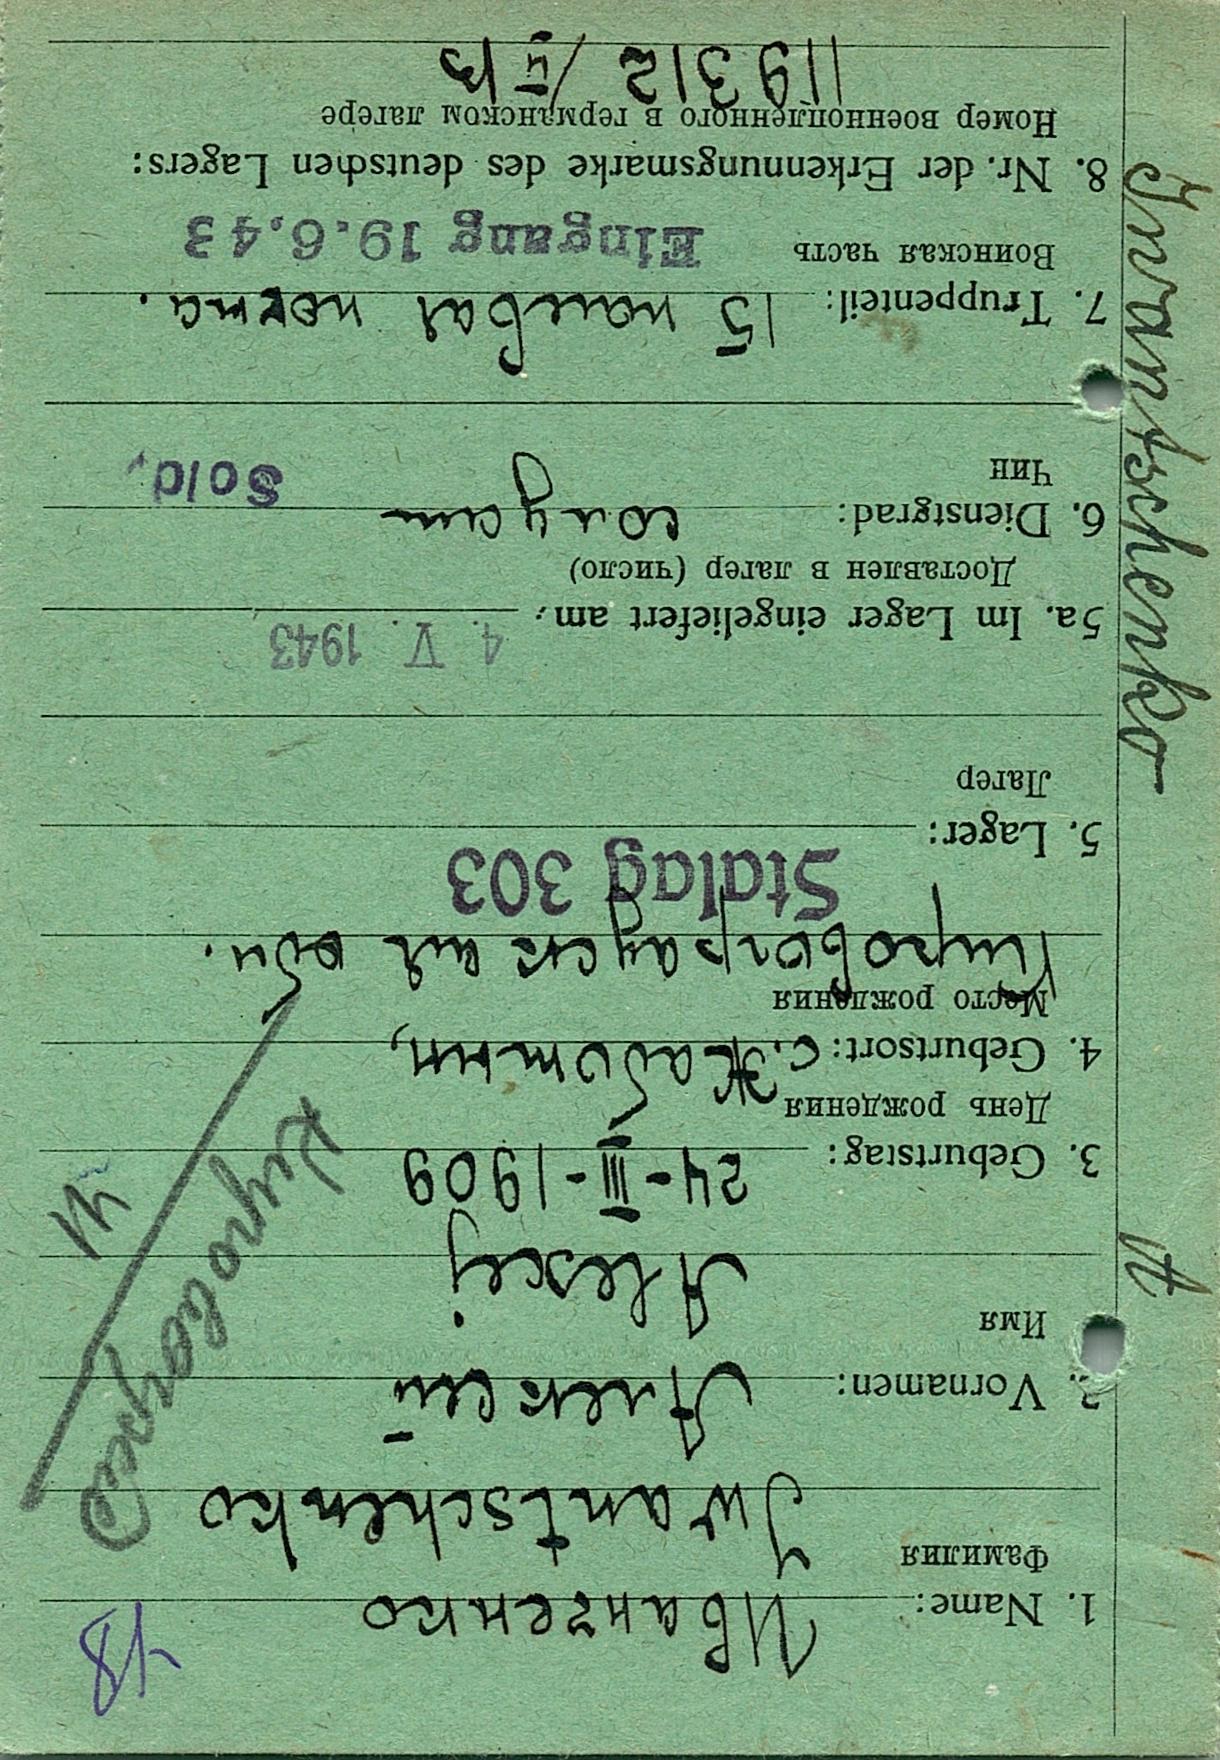 18
1. Name: Иванченко
Фамилия
Iwantschenko
2. Vornamen: Алексей
Имя
Alexej
3. Geburtstag: 24-III-1909
День рождения
4. Geburtsort: с.
Место рождения
Кировоградск обл.
Stalag 303
5. Lager:
Лагер
4. V. 1943
5a. Im Lager eingeliefert am:
Доставлен в лагер (число)
6. Dienstgrad: солдат Sold.
Чин
7. Truppenteil: 15
Воинская часть Eingang 19.6.43
8. Nr. der Erkennungsmarke des deutschen Lagers:
Номер военнопленного в германском лагере
119312 / II B
Iwantschenko A
Кировоград